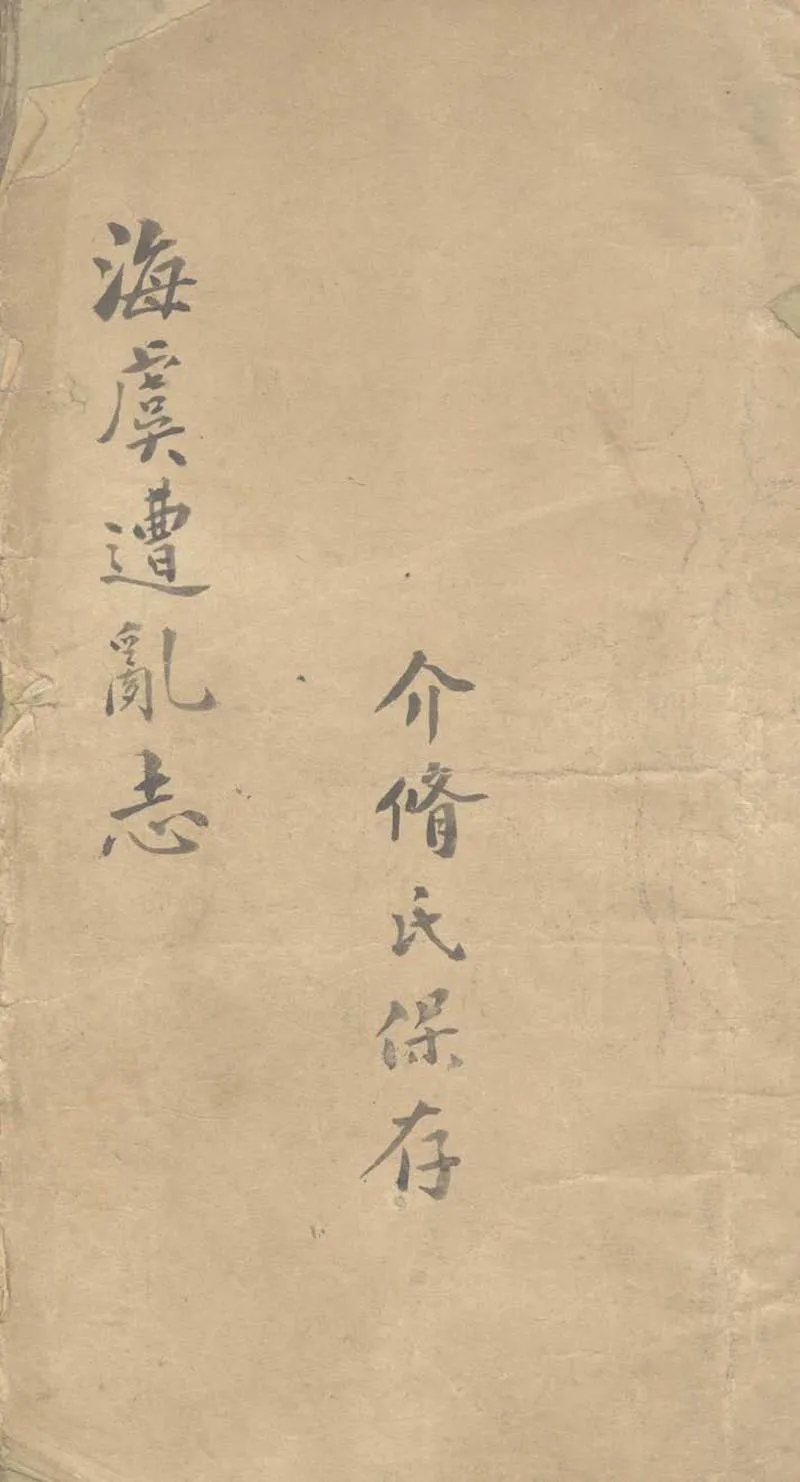 海虞遭亂志
介脩氏保存